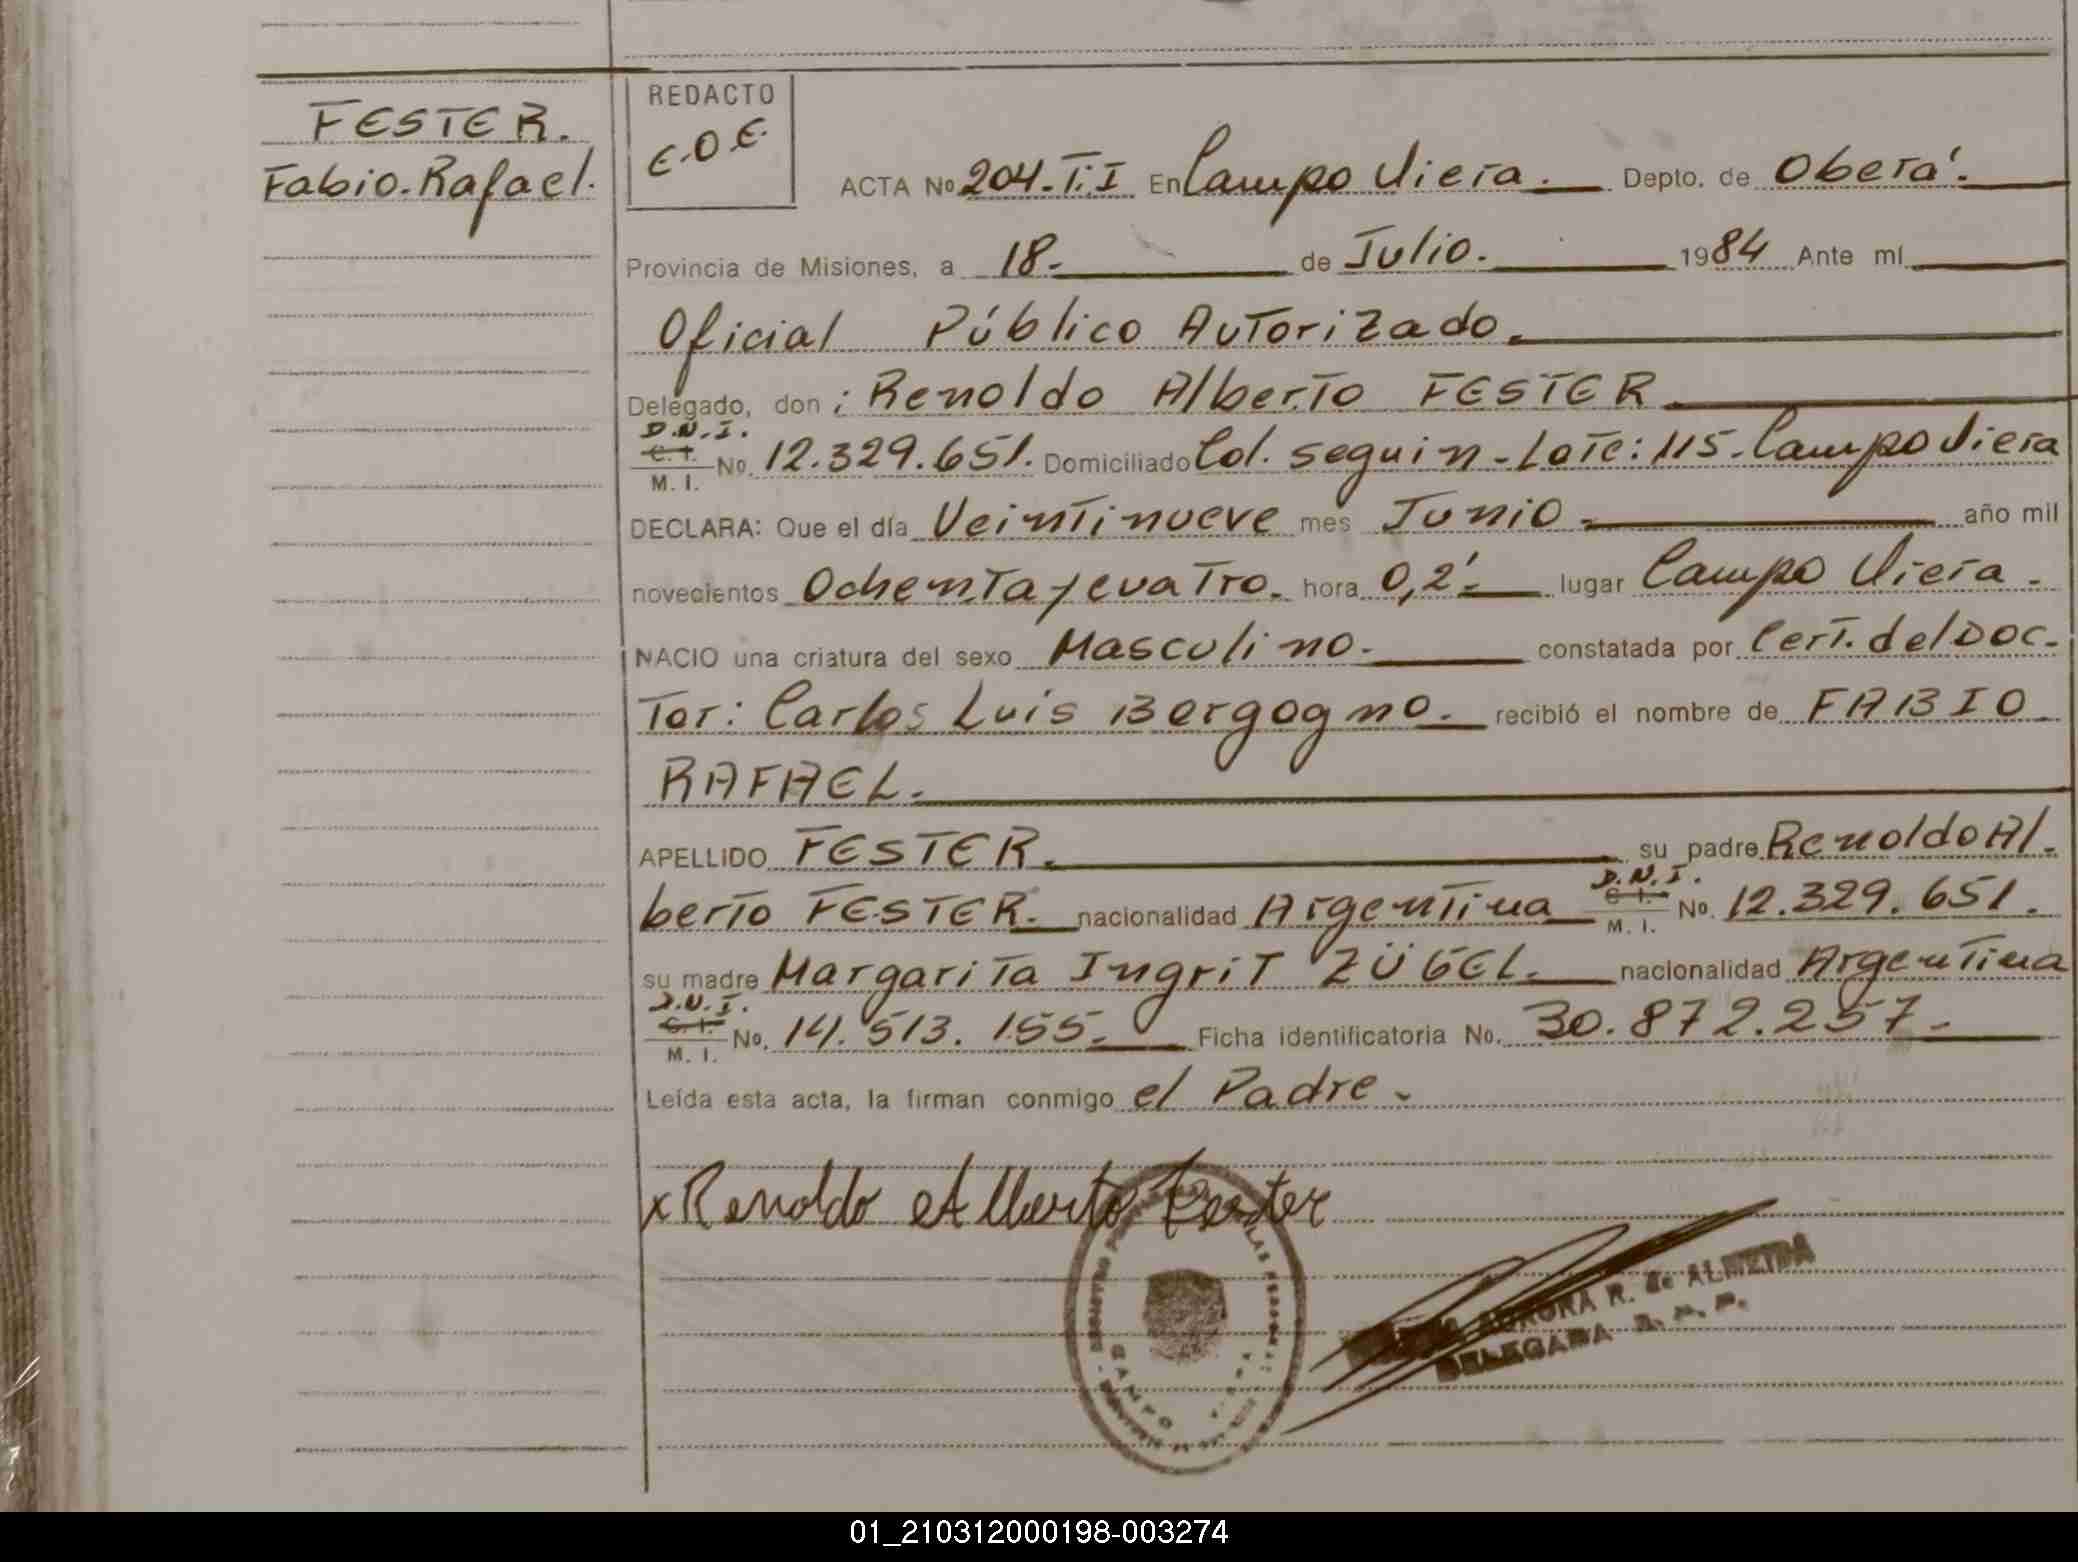 FESTER.
Fabio.Rafael.
REDACTO
E.O.E.
ACTA No 204.T.I En Campo Viera. Depto. de Oberá.
Provincia de Misiones, a 18. de Julio. 1984 Ante mí
Oficial Público Autorizado.
Delegado, don: Renoldo Alberto FESTER
D.N.I.
C. I.
M. I.
No. 12.329.651. Domiciliado Col. Seguin - Lote: 115. Campo Viera
DECLARA: Que el día Veintinueve mes Junio. año mil
novecientos Ochenta y cuatro. hora 0,2'. lugar Campo Viera.
NACIO una criatura del sexo Masculino. constatada por Cert. del Doc-
Tor: Carlos Luis Bergogno. recibió el nombre de FABIO
RAFAEL.
APELLIDO FESTER. su padre Renoldo Al-
D.N.I.
berto FESTER. nacionalidad Argentina C. I. No. 12.329.651.
M. I.
su madre Margarita Ingrit ZÜGEL. nacionalidad Argentina
D.N.I.
C. I.
M. I.
No. 14.513.155. Ficha identificatoria No. 30.872.257.
Leída esta acta, la firman conmigo el Padre.
x Renoldo Alberto Fester
AURORA R. de ALMEIDA
DELEGADA R. P. P.
CAMPO
01_210312000198-003274